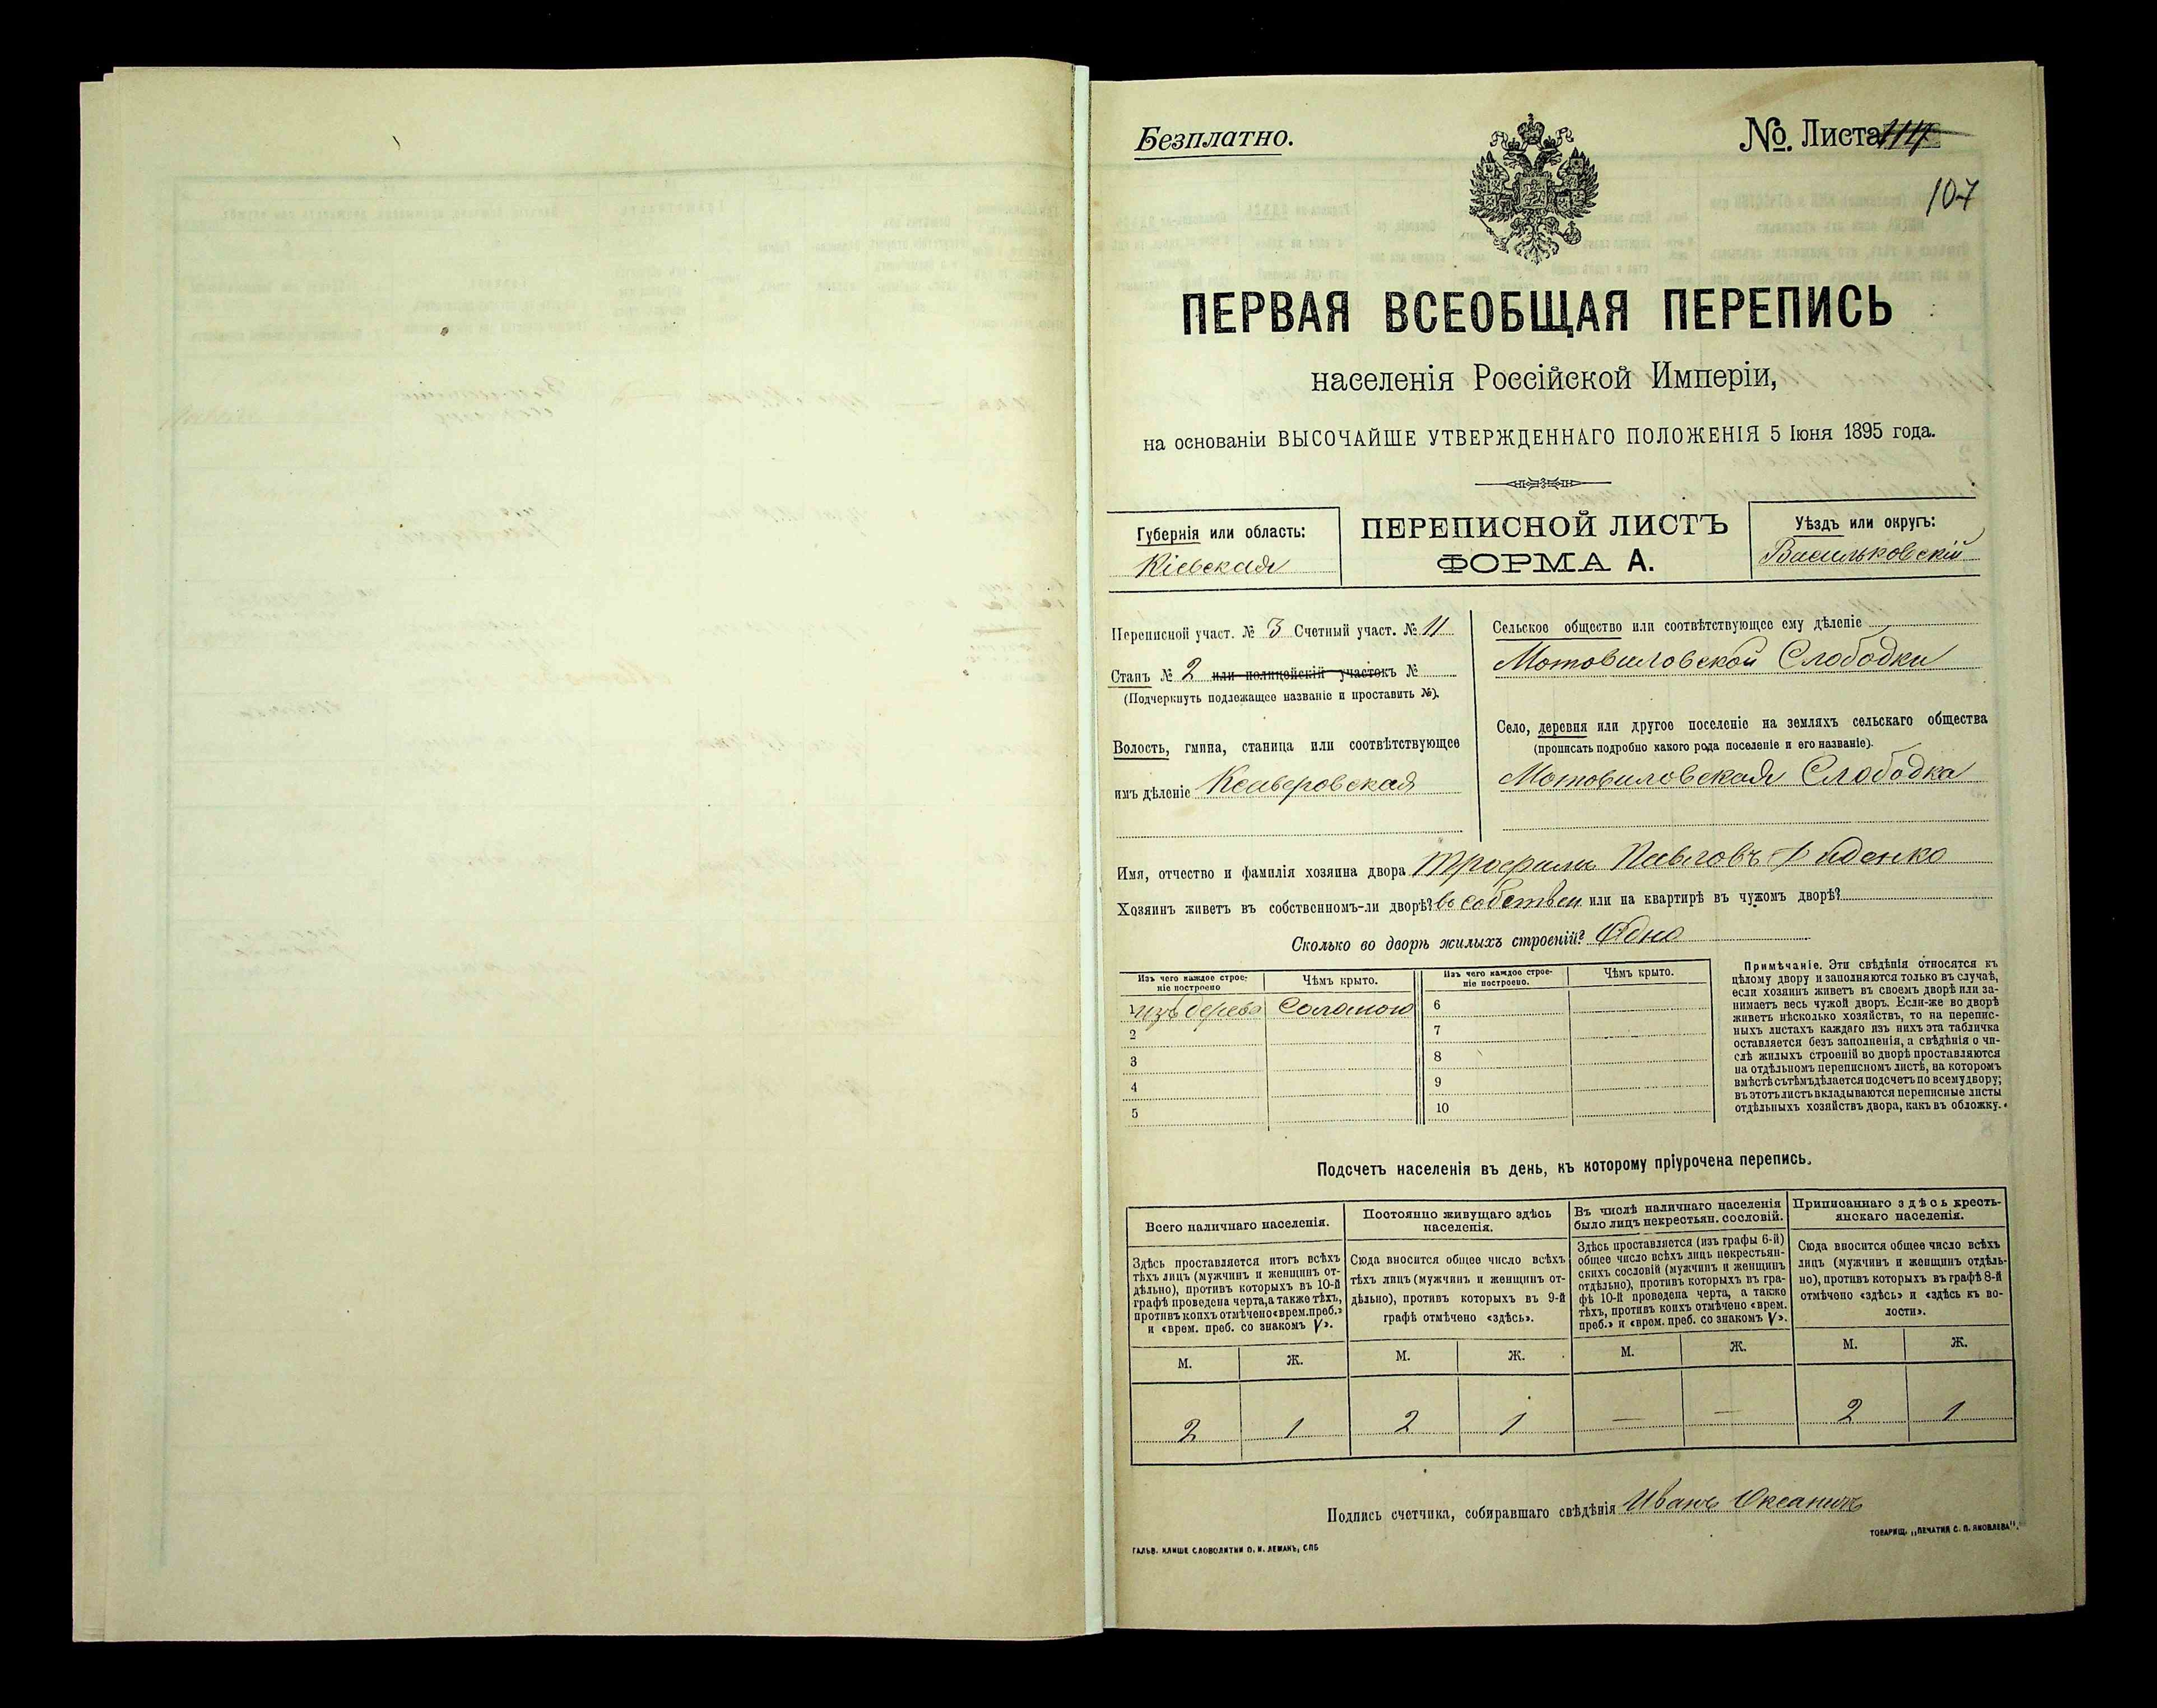 Безплатно.
№ Листа 114
107
ПЕРВАЯ ВСЕОБЩАЯ ПЕРЕПИСЬ
населенія Россійской Имперіи,
на основаніи ВЫСОЧАЙШЕ УТВЕРЖДЕННАГО ПОЛОЖЕНІЯ 5 Іюня 1895 года.
Губернія или область:
Кіевская
ПЕРЕПИСНОЙ ЛИСТЪ
ФОРМА А.
Уѣздъ или округъ:
Васильковскій
Переписной участ. № 3 Счетный участ. № 11
Станъ № 2 или полицейскій участокъ №
(Подчеркнуть подлежащее названіе и проставить №).
Волость, гмина, станица или соотвѣтствующее
имъ дѣленіе Ксаверовская
Сельское общество или соотвѣтствующее ему дѣленіе
Мотовиловской Слободки
Село, деревня или другое поселеніе на земляхъ сельскаго общества
(прописать подробно какого рода поселеніе и его названіе).
Мотовиловская Слободка
Имя, отчество и фамилія хозяина двора Трофимъ Павловъ
Хозяинъ живетъ въ собственномъ-ли дворѣ? въ собствен или на квартирѣ въ чужомъ дворѣ?
Сколько во дворѣ жилыхъ строеній? Одно
Изъ чего каждое строе-
ніе построено
Чѣмъ крыто.
Изъ чего каждое строе-
ніе построено.
Чѣмъ крыто.
1 изъ дерева Соломою 6
2 7
3 8
4 9
5 10
Примѣчаніе. Эти свѣдѣнія относятся къ
цѣлому двору и заполняются только въ случаѣ,
если хозяинъ живетъ въ своемъ дворѣ или за-
нимаетъ весь чужой дворъ. Если-же во дворѣ
живетъ нѣсколько хозяйствъ, то на перепис-
ныхъ листахъ каждаго изъ нихъ эта табличка
оставляется безъ заполненія, а свѣдѣнія о чи-
слѣ жилыхъ строеній во дворѣ проставляются
на отдѣльномъ переписномъ листѣ, на которомъ
вмѣстѣ съ тѣмъ дѣлается подсчетъ по всему двору;
въ этотъ листъ вкладываются переписные листы
отдѣльныхъ хозяйствъ двора, какъ въ обложку.
Подсчетъ населенія въ день, къ которому пріурочена перепись.
Всего наличнаго населенія.
Постоянно живущаго здѣсь
населенія.
Въ числѣ наличнаго населенія
было лицъ некрестьян. сословій.
Приписаннаго здѣсь кресть-
янскаго населенія.
Здѣсь проставляется итогъ всѣхъ
тѣхъ лицъ (мужчинъ и женщинъ от-
дѣльно), противъ которыхъ въ 10-й
графѣ проведена черта, а также тѣхъ,
противъ коихъ отмѣчено «врем. преб.»
и «врем. преб. со знакомъ V».
Сюда вносится общее число всѣхъ
тѣхъ лицъ (мужчинъ и женщинъ от-
дѣльно), противъ которыхъ въ 9-й
графѣ отмѣчено «здѣсь».
Здѣсь проставляется (изъ графы 6-й)
общее число всѣхъ лицъ некрестьян-
скихъ сословій (мужчинъ и женщинъ
отдѣльно), противъ которыхъ въ гра-
фѣ 10-й проведена черта, а также
тѣхъ, противъ коихъ отмѣчено «врем.
преб.» и «врем. преб. со знакомъ V».
Сюда вносится общее число всѣхъ
лицъ (мужчинъ и женщинъ отдѣль-
но), противъ которыхъ въ графѣ 8-й
отмѣчено «здѣсь» и «здѣсь къ во-
лости».
М. Ж. М. Ж. М. Ж. М. Ж.
2 1 2 1 — — 2 1
Подпись счетчика, собиравшаго свѣдѣнія Иванъ
ГАЛЬВ. КЛИШЕ СЛОВОЛИТНИ О. И. ЛЕМАНЪ, СПБ
ТОВАРИЩ. „ПЕЧАТНЯ С. П. ЯКОВЛЕВА".